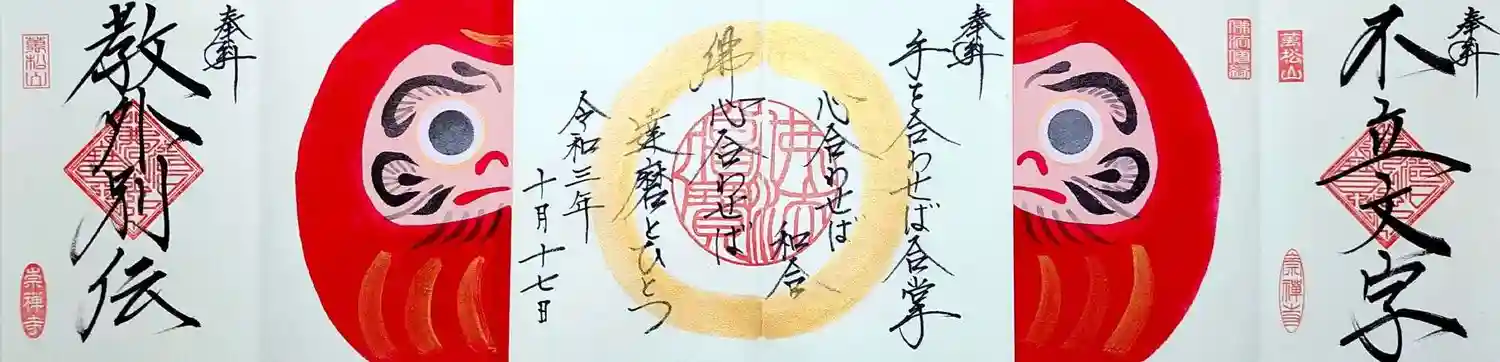 奉拝
不立文字
萬松山
崇禪寺
奉拝
手を合わせば合掌
心合わせば
和合
佛心合わせば
達磨とひとつ
令和三年
十月十七日
佛法僧寶
奉拝
教外別伝
萬松山
崇禅寺